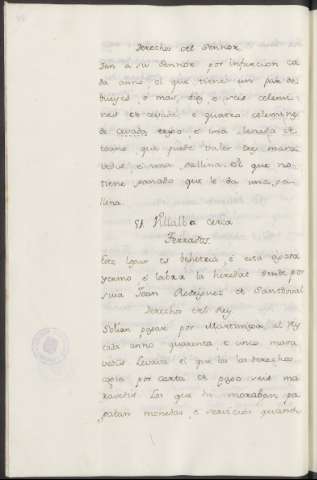 Derechos del Sennor
Dan a su Sennor por infurcion ca
da anno el que tiene un par de
bueyes, o mas, diez e seis celemi
nes de cevada e quatro celemines
de cevada, trigo, e una
tocino que puede valer tres mara
vedis e una gallina. El que no
tiene ganado que le da una ga
llina.
Villalba cerca
Ferrados.
Este logar es behetria e está agora
yermo e labra la heredat dende por
suia Joan Rodriguez de Sandoval
Derechos del Rey
Solian pagar por Martiniega al Rey
cada anno quarenta e cinco mara
vedis
por carta de pago seis ma
ravedis. Los que hi moraban pa
gaban monedas e servicios quando